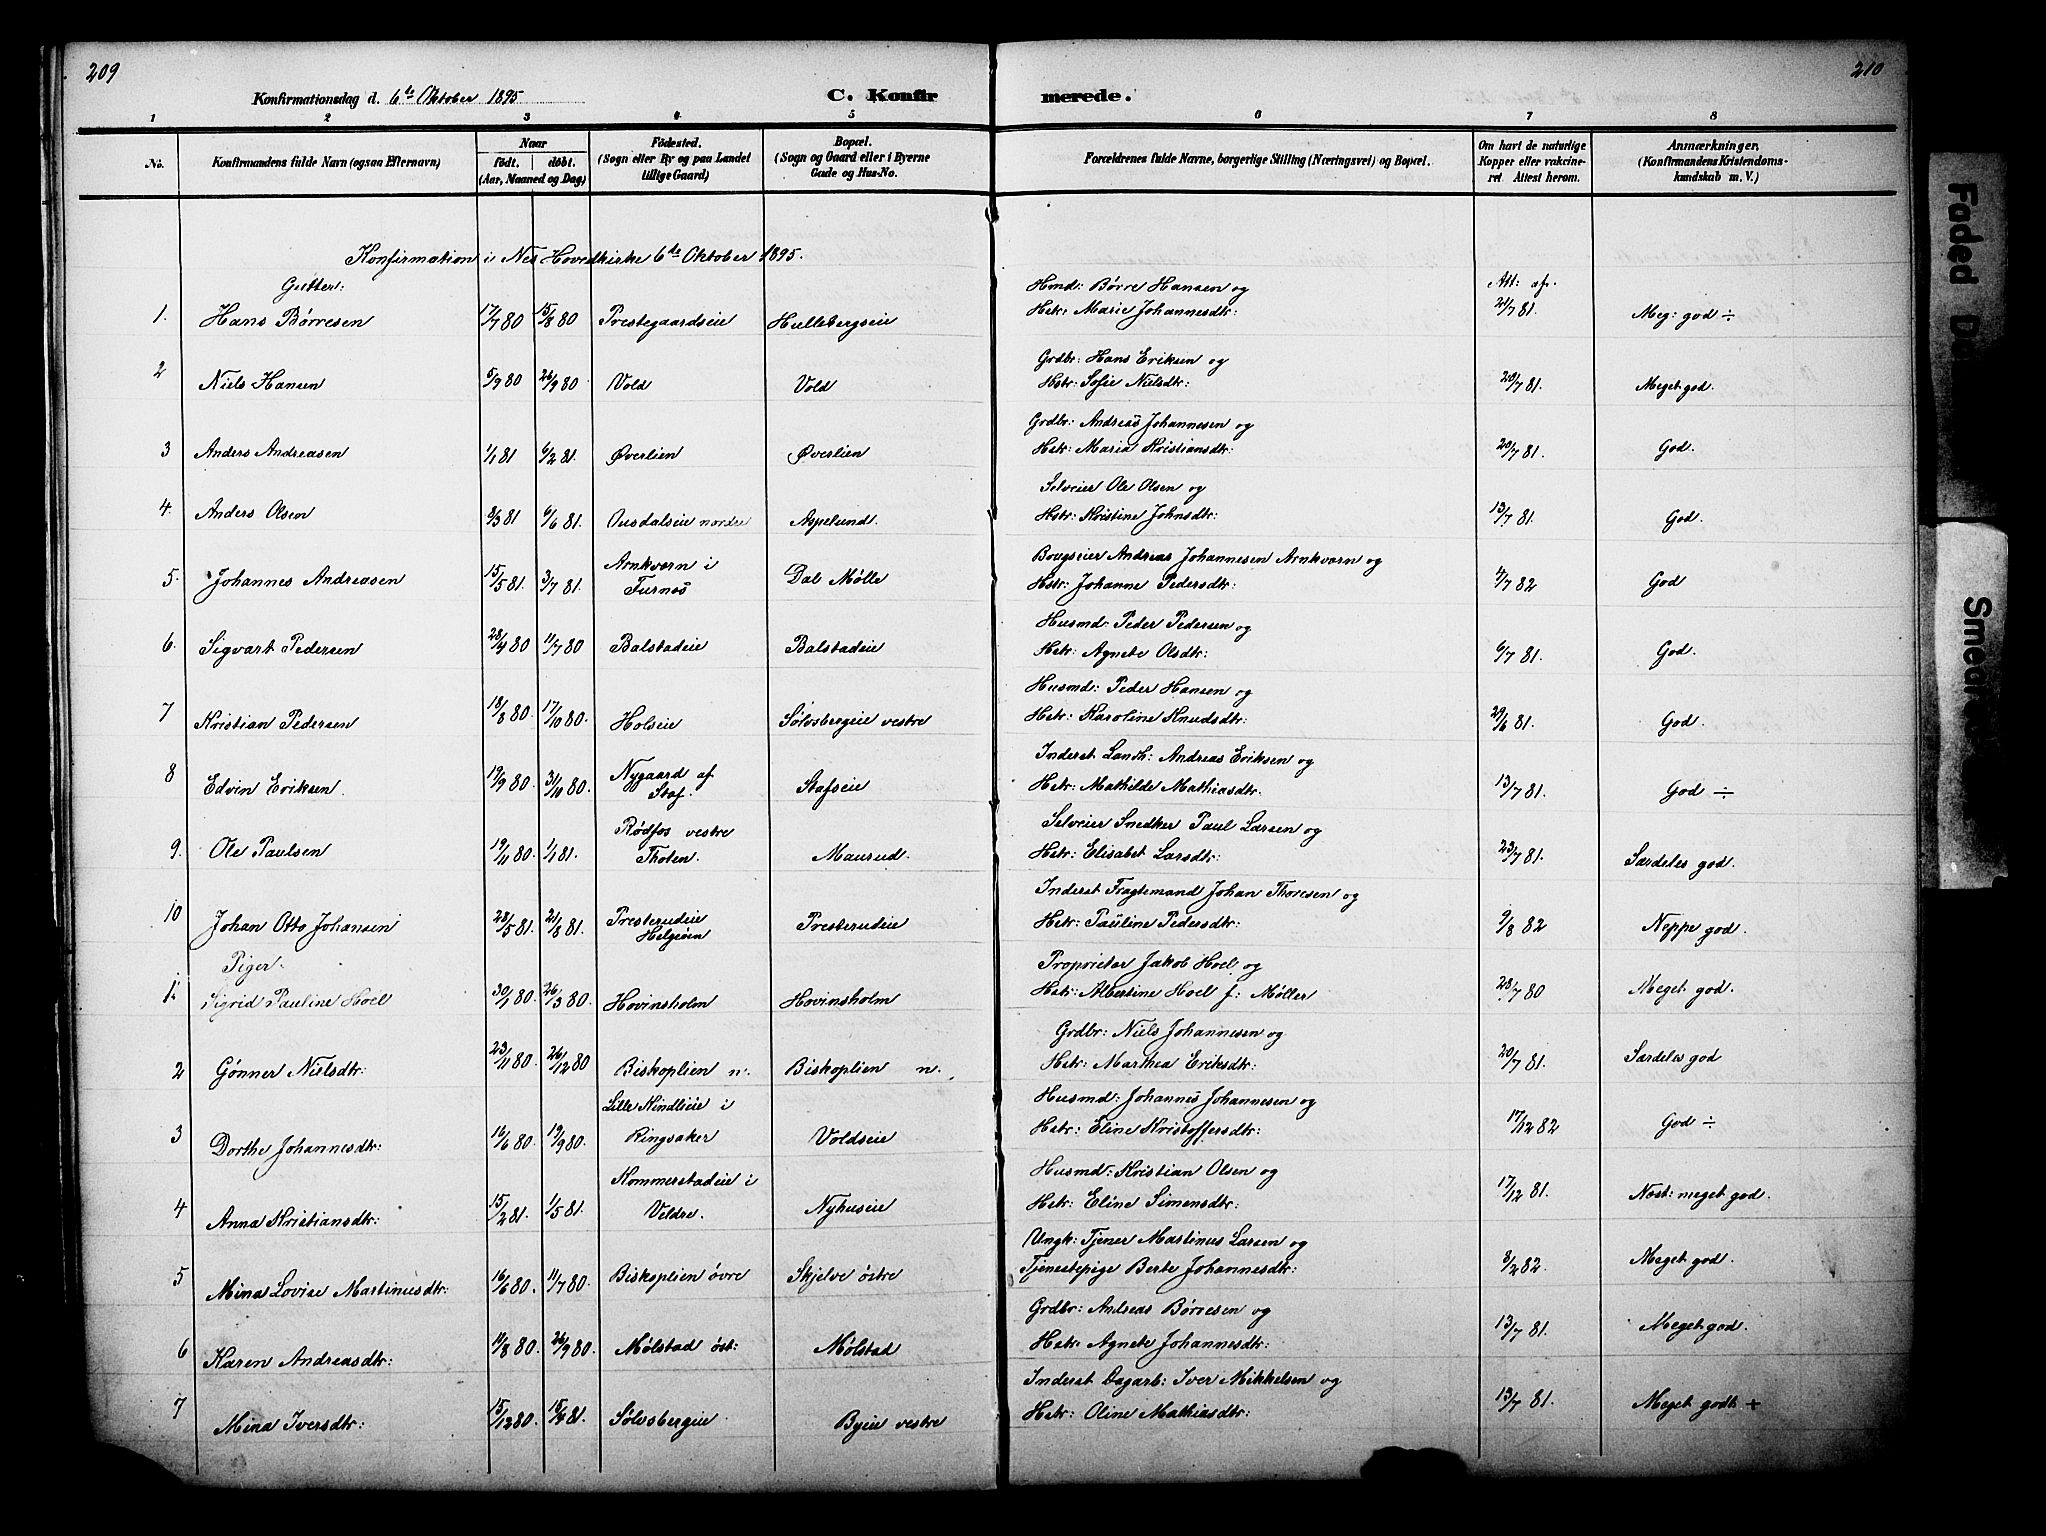 209
210
Konfirmationsdag d. 6te Oktober 1895
C. Konfir
merede.
1 2 3 4 5 6 7 8
No. Konfirmandens fulde Navn (ogsaa Efternavn) Naar født. døbt. (Aar, Maaned og Dag) Fødested. (Sogn eller By og paa Landet tillige Gaard) Bopæl. (Sogn og Gaard eller i Byerne Gade og Hus-No. Forældrenes fulde Navne, borgerlige Stilling (Næringsvei) og Bopæl. Om havt de naturlige Kopper eller vakcineret Attest herom. Anmærkninger. (Konfirmandens Kristendomskundskab m. V.)
Konfirmation i Nes Hovedkirke 6te Oktober 1895.
Gutter:
Hmd: Børre Hansen og Att: af.
1. Hans Børresen 17/7 80 15/8 80 Prestegaardseie Hullebergseie Hstr: Marie Johannesdtr: 21/7 81. Meg: god ÷
Grdbr: Hans Eriksen og
2 Niels Hansen 5/9 80 26/9 80 Vold Vold Hstr: Sofie Nielsdtr: 20/7 81. Meget god.
Grdbr: Andreas Johannesen og
3 Anders Andreasen 1/1 81 6/2 81. Øverlien Øverlien Hstr: Maria Kristiansdtr: 20/7 81. God.
Selveier Ole Olsen og
4. Anders Olsen 3/3 81 6/6 81. Ousdalseie nordre Appelund. Hstr: Kristine Johnsdtr: 13/7 81. God.
Arnkværn i Bougseier Andreas Johannesen Arnkværn og
5. Johannes Andreasen 15/5 81. 3/7 81. Furnes Dal Mølle Hstr: Johanne Pedersdtr: 4/7 82 God
Husmd: Peder Pedersen og
6. Sigvart Pedersen 28/4 80 11/7 80 Balstadeie Balstadeie Hstr: Agnete Olsdtr: 6/7 81. God.
Husmd: Peder Hansen og
7 Kristian Pedersen 18/8 80 17/10 80. Holseie Sølvsbergeie vestre Hstr: Karoline Knudsdtr: 29/6 81. God.
Nygaard af Inderst Landh: Andreas Eriksen og
8 Edvin Eriksen. 19/9 80 31/10 80. Staf. Stafseie Hstr: Mathilde Mathiasdtr. 13/7 81. God ÷
Rødfos vestre Selveier Snedker Paul Larsen og
9. Ole Paulsen 19/11 80 1/1 81. Thoten. Maurud. Hstr: Elisabet Larsdtr: 23/7 81. Særdeles god.
Inderst Fragtemand Johan Thoresen og
10 Johan Otto Johansen 28/5 81. 21/8 81. Presterudeie Helgøien Presterudeie Hstr: Pauline Pedersdtr: 9/8 82 Neppe god.
Piger.
Proprietær Jakob Hoel og
1. Sigrid Pauline Hoel 30/1 80. 26/3 80. Hovinsholm Hovinsholm Hstr: Albertine Hoel f: Møller 28/7 80 Meget god.
Grdbr: Niels Johannesen og
2 Gønner Nielsdtr: 23/11 80. 26/12 80 Biskoplien n. Biskoplien n. Hstr: Marthea Eriksdtr: 20/7 81. Særdeles god
Lille Kindlieie i Husmd: Johannes Johannesen og
3 Dorthe Johannesdtr: 16/6 80. 19/9 80. Ringsaker Voldseie Hstr: Eline Kristoffersdtr: 17/12 82 God ÷
Kommerstadeie i Husmd: Kristian Olsen og
4 Anna Kristiansdtr: 15/2 81. 1/5 81. Veldre. Nyhuseie Hstr: Eline Simensdtr: 17/12 81. Næst: meget god.
Ungk: Tjener Martinus Larsen og
5 Mina Lovise Martinusdtr: 16/6 80. 11/7 80. Biskoplien øvre Skjelve østre Tjenestepige Berte Johannesdtr: 8/2 82. Meget god.
Grdbr: Andreas Børresen og
6 Karen Andreasdtr: 11/8 80. 26/9 80. Mølstad øst: Mølstad Hstr: Agnete Johannesdtr: 13/7 81. Meget god.
Inderst Dagarb: Iver Mikkelsen og
7 Mina Iversdtr: 15/12 80. 15/4 81. Sølvsbergeie Byeie vestre Hstr: Oline Mathiasdtr: 13/7 81. Meget godt +
Faded
Smear